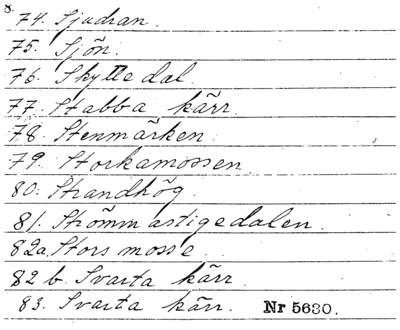 8.
74. Sjudran.
75. Sjön.
76. Skyttedal.
77. Stabba kärr.
78. Stenmärken.
79. Storkamossen.
80. Strandhög.
81. Strömmastigedalen.
82a. Stors mosse
82 b. Svarta kärr.
83. Svarta kärr. Nr 5630.